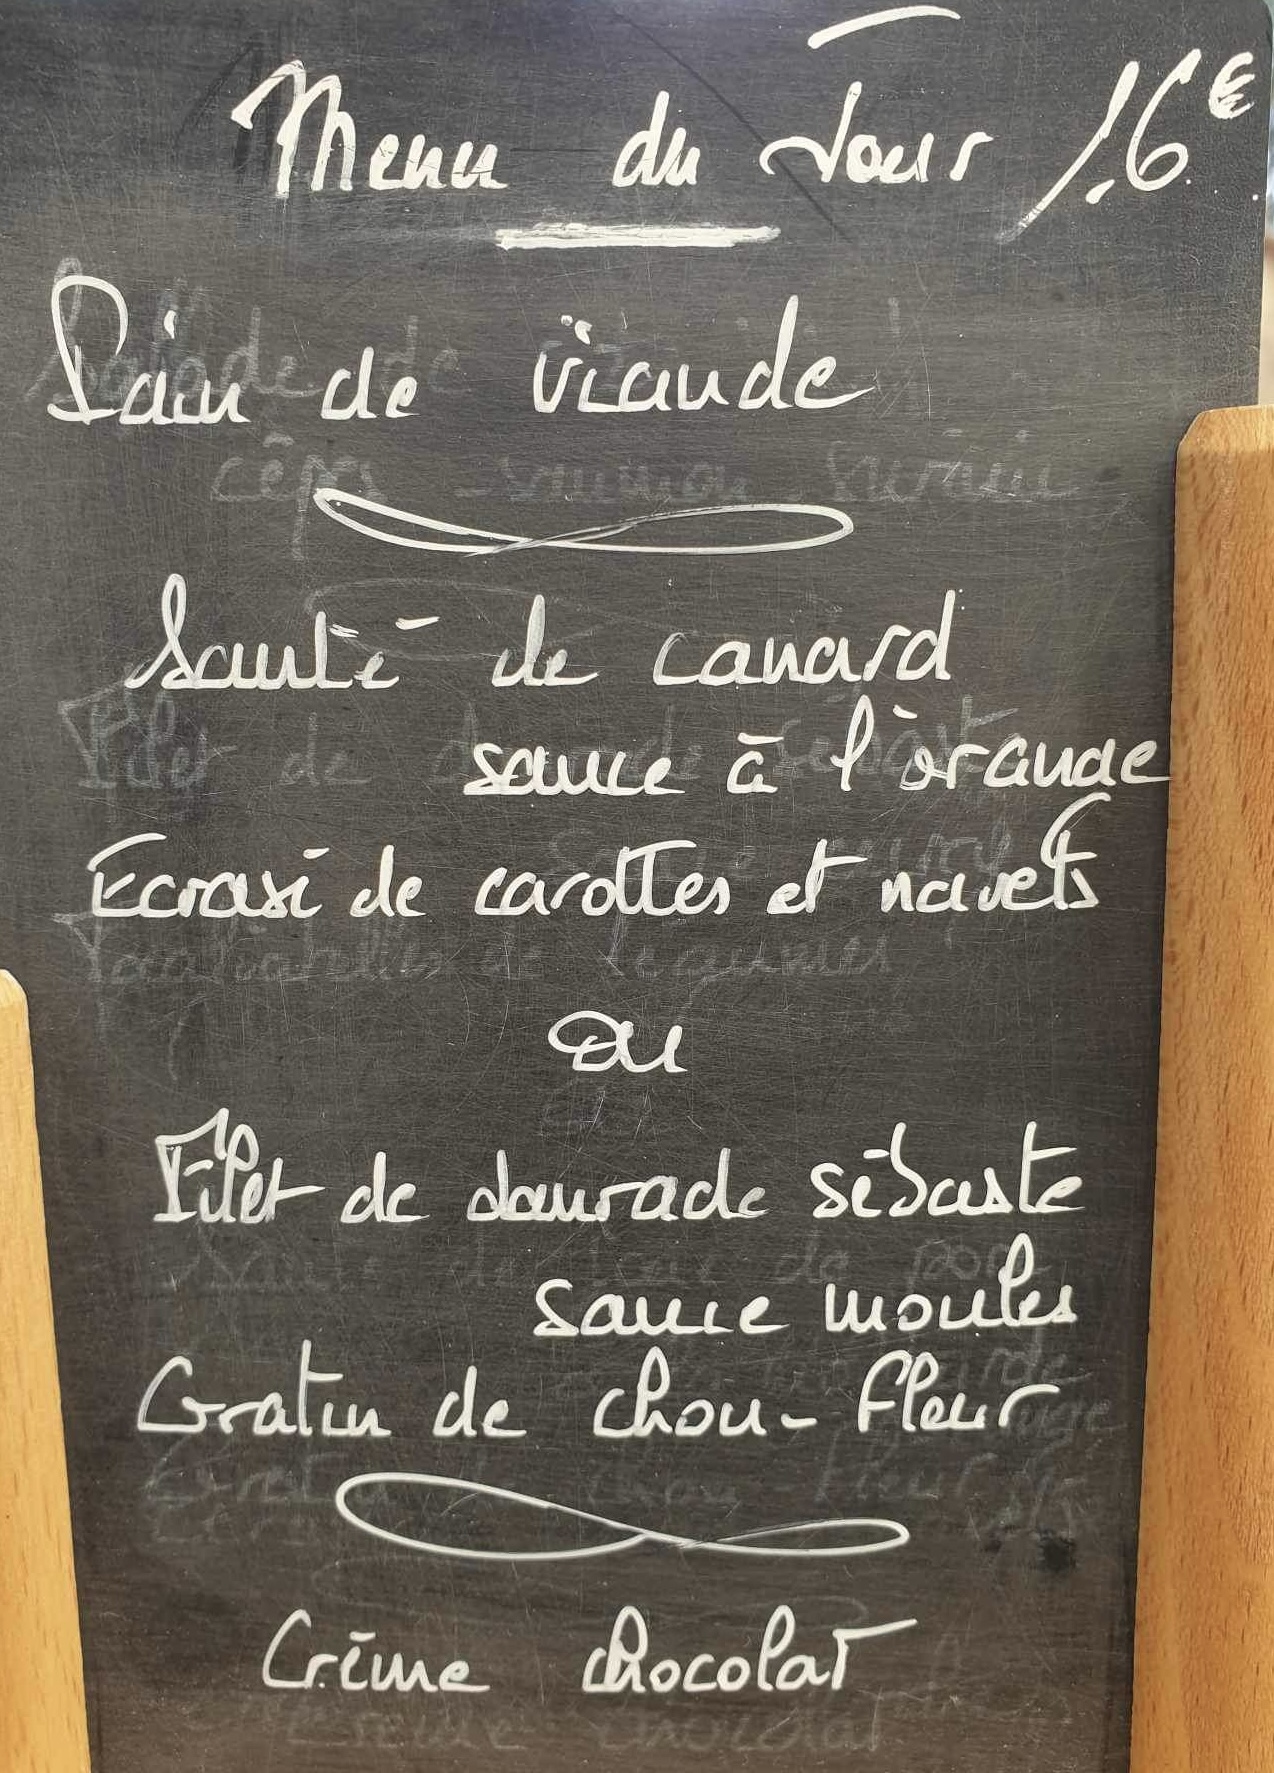 Menu du Jour 16€
Pain de viande
Sauté de canard
sauce à l'orange
Ecrasé de carottes et navets
ou
Filet de daurade sébaste
sauce moules
Gratin de chou-fleur
Crème chocolat